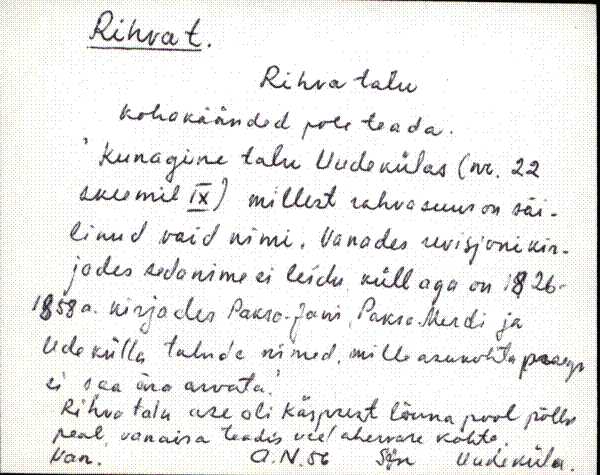 Rihva t.
Rihva talu
kohakäänded pole teada.
"Kunagine talu Uudekülas (nr. 22
skeemil IX) millest rahvasuus on säi-
linud vaid nimi. Vanades revisjonikir-
jades seda nime ei leidu, küll aga on 1826-
1858 a. kirjades Pakso-Jani, Pakso-Mardi ja
Udekülla talude nimed, mille asukohta praegu
ei saa ära arvata."
Rihva talu ase oli Käsprest lõuna pool põllu
peal, vanaisa teadis veel ahervare kohta.
Van. A.N. 56 Sjn Uudeküla.